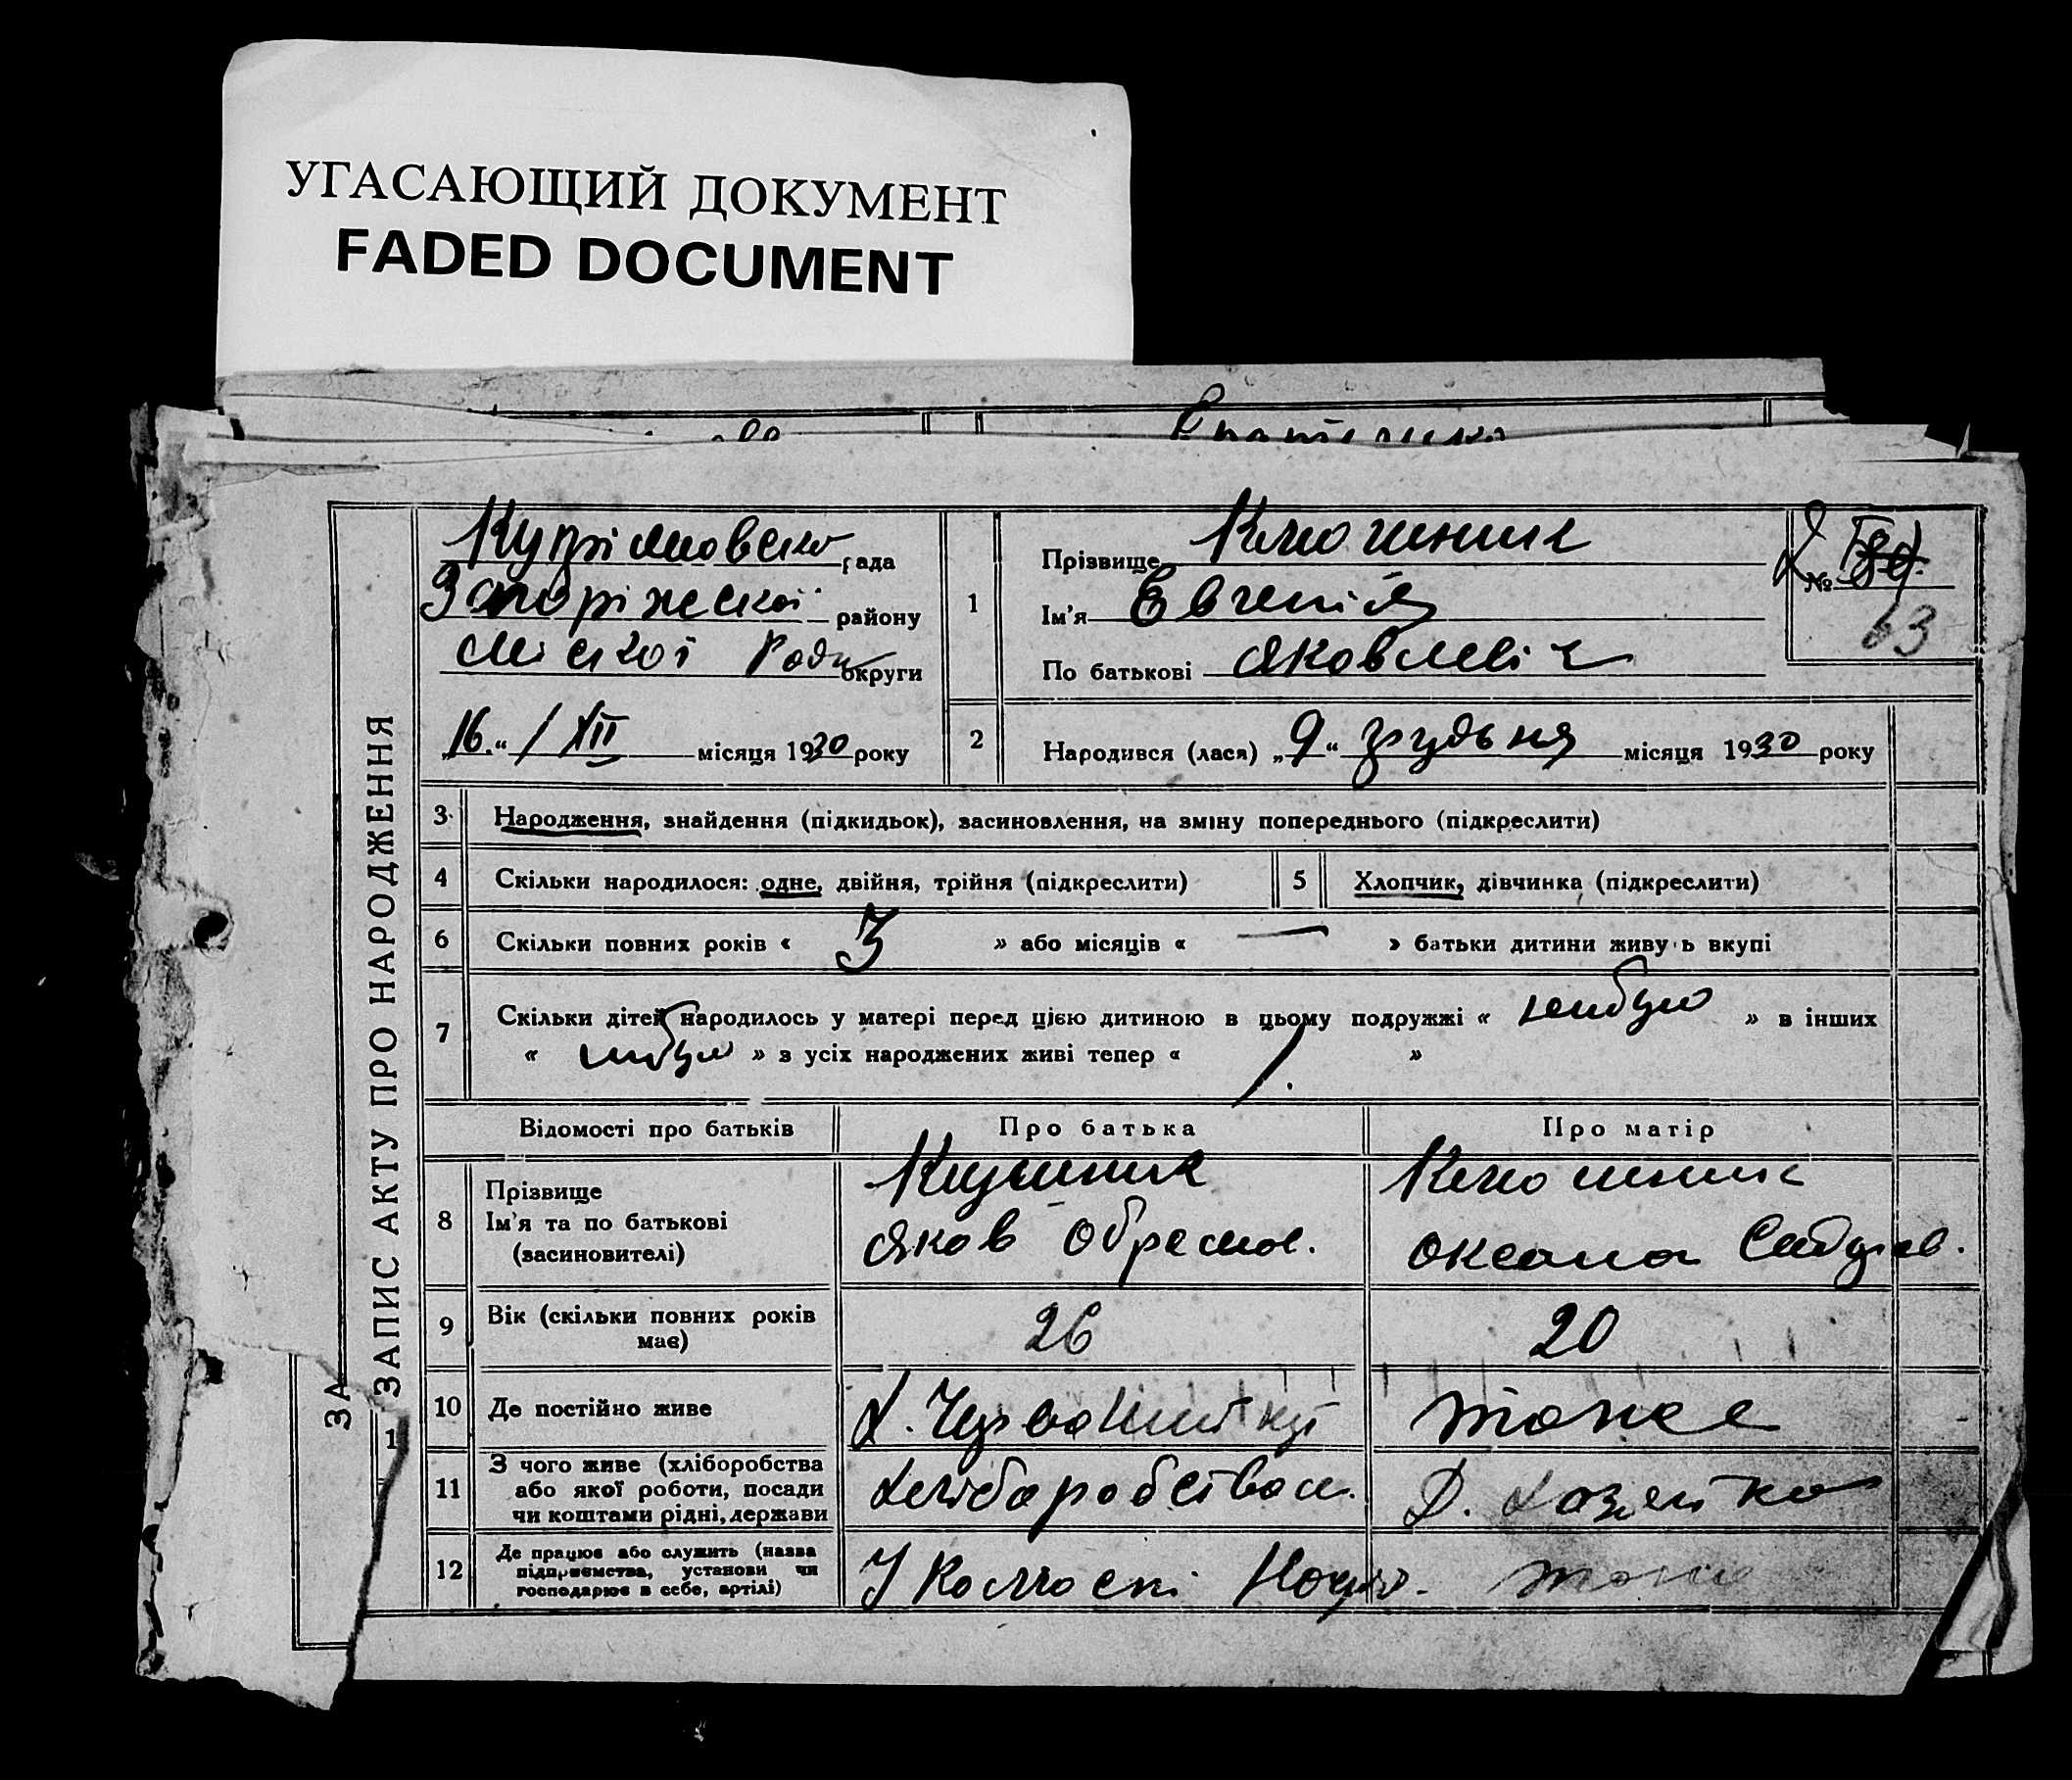 УГАСАЮЩИЙ ДОКУМЕНТ
FADED DOCUMENT
ЗАПИС АКТУ ПРО НАРОДЖЕННЯ
ЗА
1
рада
Запоріжської району
Міської Ради округи
„16.“ / XII місяця 1930 року
1
Прізвище Клюшник
Ім'я Євгеній
По батькові Яковлевіч
№
63
2
Народився (лася) „9“ грудьня місяця 1930 року
3 Народження, знайдення (підкидьок), засиновлення, на зміну попереднього (підкреслити)
4 Скільки народилося: одне, двійня, трійня (підкреслити)
5 Хлопчик, дівчинка (підкреслити)
6 Скільки повних років « 3 » або місяців « — » батьки дитини живу ь вкупі
7 Скільки дітей народилось у матері перед цією дитиною в цьому подружжі « небуло » в інших
« небуло » з усіх народжених живі тепер « »
Відомості про батьків Про батька Про матір
8 Прізвище Клюшник
Ім'я та по батькові Яков Оксана
(засиновителі)
9 Вік (скільки повних років має) 26 20
10 Де постійно живе тоже
11 З чого живе (хліборобства
або якої роботи, посади
чи коштами рідні, держави
Хліборобством. Д. Хазяйка
12 Де працює або служить (назва
підприємства, установи чи
господарює в себе, артілі)
У тоже